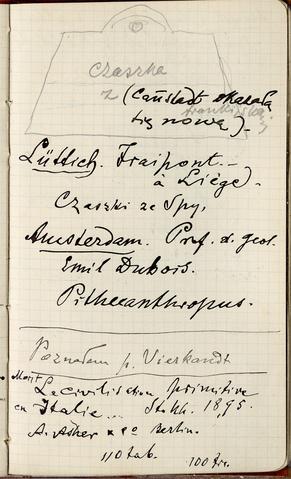 Czaszka
z (Canstadt okazała
się nową).
Lüttich. Fraipont –
à Liège.
Czaszki ze Spy,
Amsterdam. Prof. d. geol.
Emil Dubois.
Pithecanthropus.
Poznałem p. Vierkandt
La civilisation primitive
en Italie... Stokh. 1895.
A. Asher & Co Berlin.
110 tab. 100 fr.